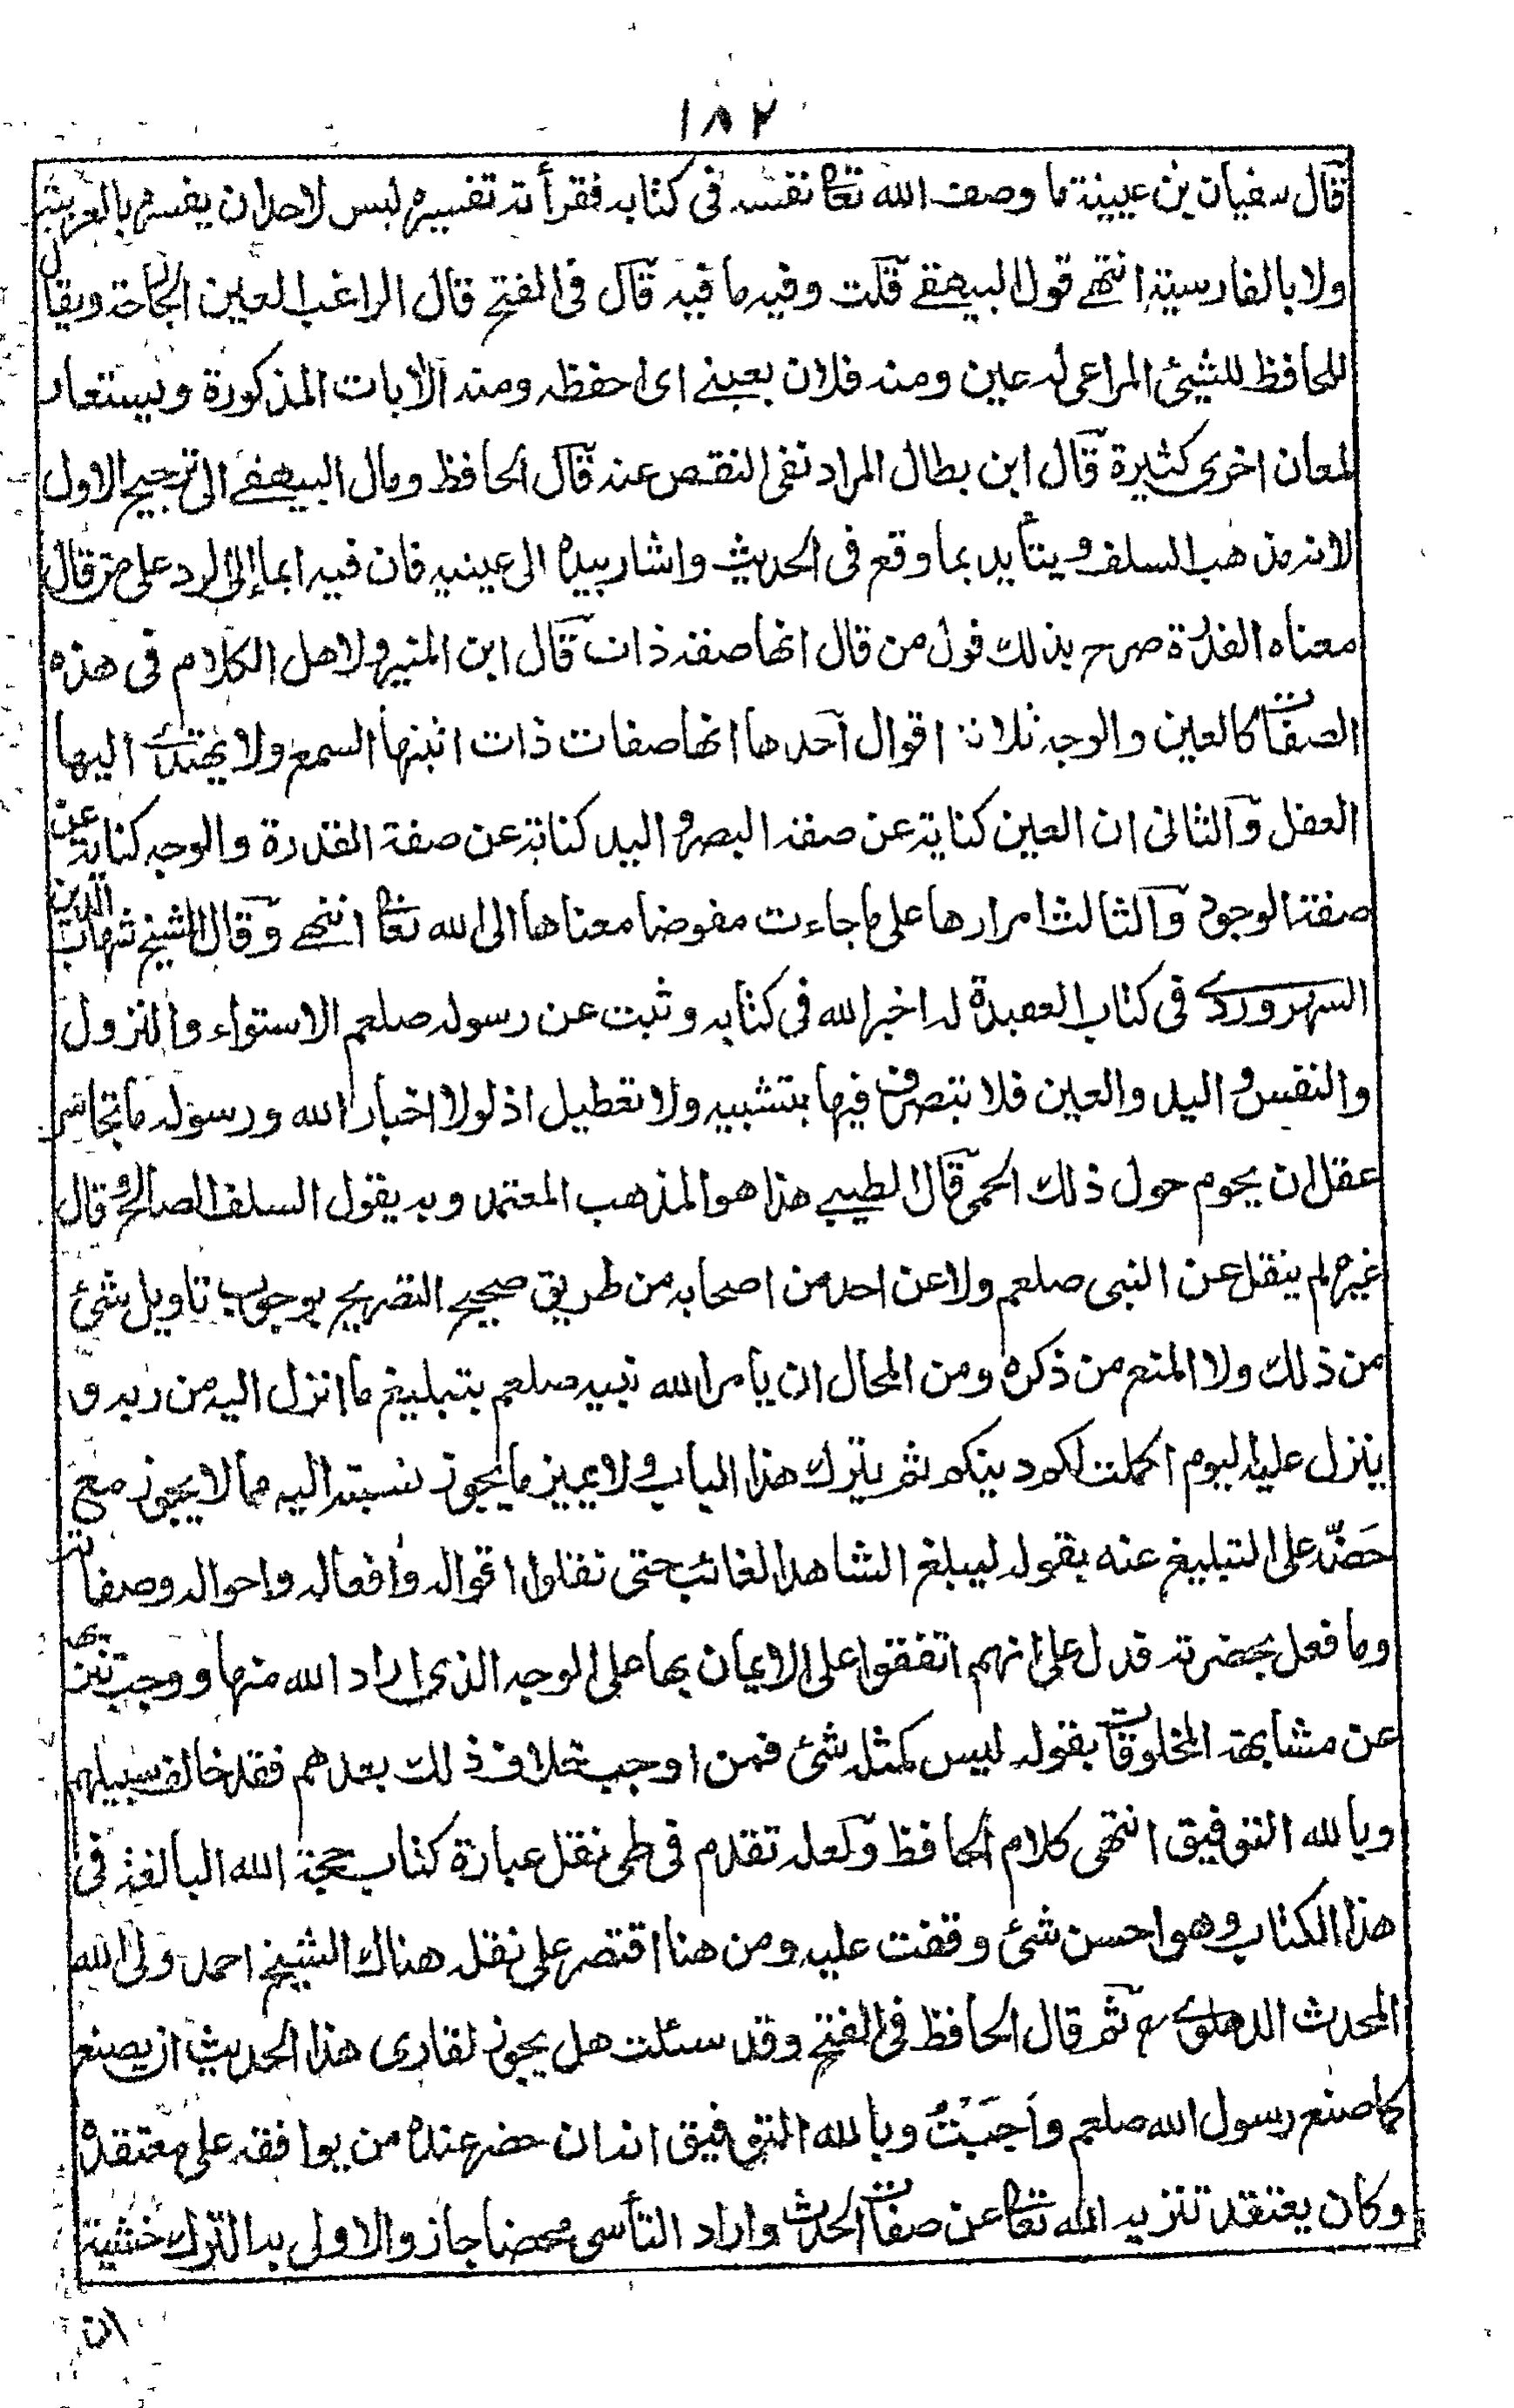 ١٨٢
قال سفيان بن عيينة ما وصف الله تعا نفسه فى كتابه فقرأته تفسيره ليس لاحد ان يفسره بالعربية
ولا بالفارسية انتهے قول البيهقے قلت وفيه ما فيه قال فى الفتح قال الراغب العين الجارحة ويقال
للحافظ للشيئ المراعى له عين ومنه فلان بعينے اى احفظه ومنه الآيات المذكورة ويستعار
لمعان اخرى كثيرة قال ابن بطال المراد نفى النقص عنه قال الحافظ ومال البيهقے الى ترجيح الاول
لانه مذهب السلف ويتأيد بما وقع فى الحديث واشار بيده الى عينيه فان فيه ايماء إلى الرد على من قال
معناه القدرة صرح بذلك قول من قال انها صفة ذات قال ابن المنير ولاهل الكلام فى هذه
الصفات كالعين والوجه ثلاثة اقوال احدها انها صفات ذات اثبتها السمع ولا يهتدى اليها
العقل والثانى ان العين كناية عن صفة البصر واليد كناية عن صفة القدرة والوجه كناية عن
صفة الوجود والثالث امرارها على ما جاءت مفوضا معناها الى الله تعا انتهے وقال الشيخ شهاب الدين
السهروردى فى كتاب العقيدة له اخبر الله فى كتابه وثبت عن رسوله صلعم الاستواء والنزول
والنفس واليد والعين فلا يتصرف فيها بتشبيه ولا تعطيل اذ لولا اخبار الله ورسوله ما تجاسر
عقل ان يحوم حول ذلك الحمى قال الطيبے هذا هو المذهب المعتمد وبه يقول السلف الصالح وقال
غيره لم ينقل عن النبى صلعم ولا عن احد من اصحابه من طريق صحيح التصريح بوجوب تاويل شئ
من ذلك ولا المنع من ذكره ومن المحال ان يامر الله نبيه صلعم بتبليغ ما انزل اليه من ربه و
ينزل عليه اليوم اكملت لكم دينكم ثم يترك هذا الباب ولا يميز ما يجوز نسبته اليه مما لا يجوز مع
حَضّه على التبليغ عنه بقوله ليبلغ الشاهد الغائب حتى نقلوا اقواله وافعاله واحواله وصفاته
وما فعل بحضرته فدل على انهم اتفقوا على الايمان بها على الوجه الذى اراد الله منها ووجب تنزيهه
عن مشابهة المخلوقات بقوله ليس كمثله شئ فمن اوجب خلاف ذلك بعدهم فقد خالف سبيلهم
وبالله التوفيق انتهى كلام الحافظ ولعله تقدم فى طى نقل عبارة كتاب حجة الله البالغة فى
هذا الكتاب وهو احسن شئ وقفت عليه ومن هنا اقتصر على نقله هناك الشيخ احمد ولى الله
المحدث الدهلوى رح ثم قال الحافظ فى الفتح وقد سئلت هل يجوز لقارى هذا الحديث ان يصنع
كما صنع رسول الله صلعم وأَجَبْتُ وبالله التوفيق انه ان حضر عنده من يوافقه على معتقده
وكان يعتقد تنزيه الله تعا عن صفات الحدث واراد التأسى محضا جاز والاولى به الترك خشية
ان